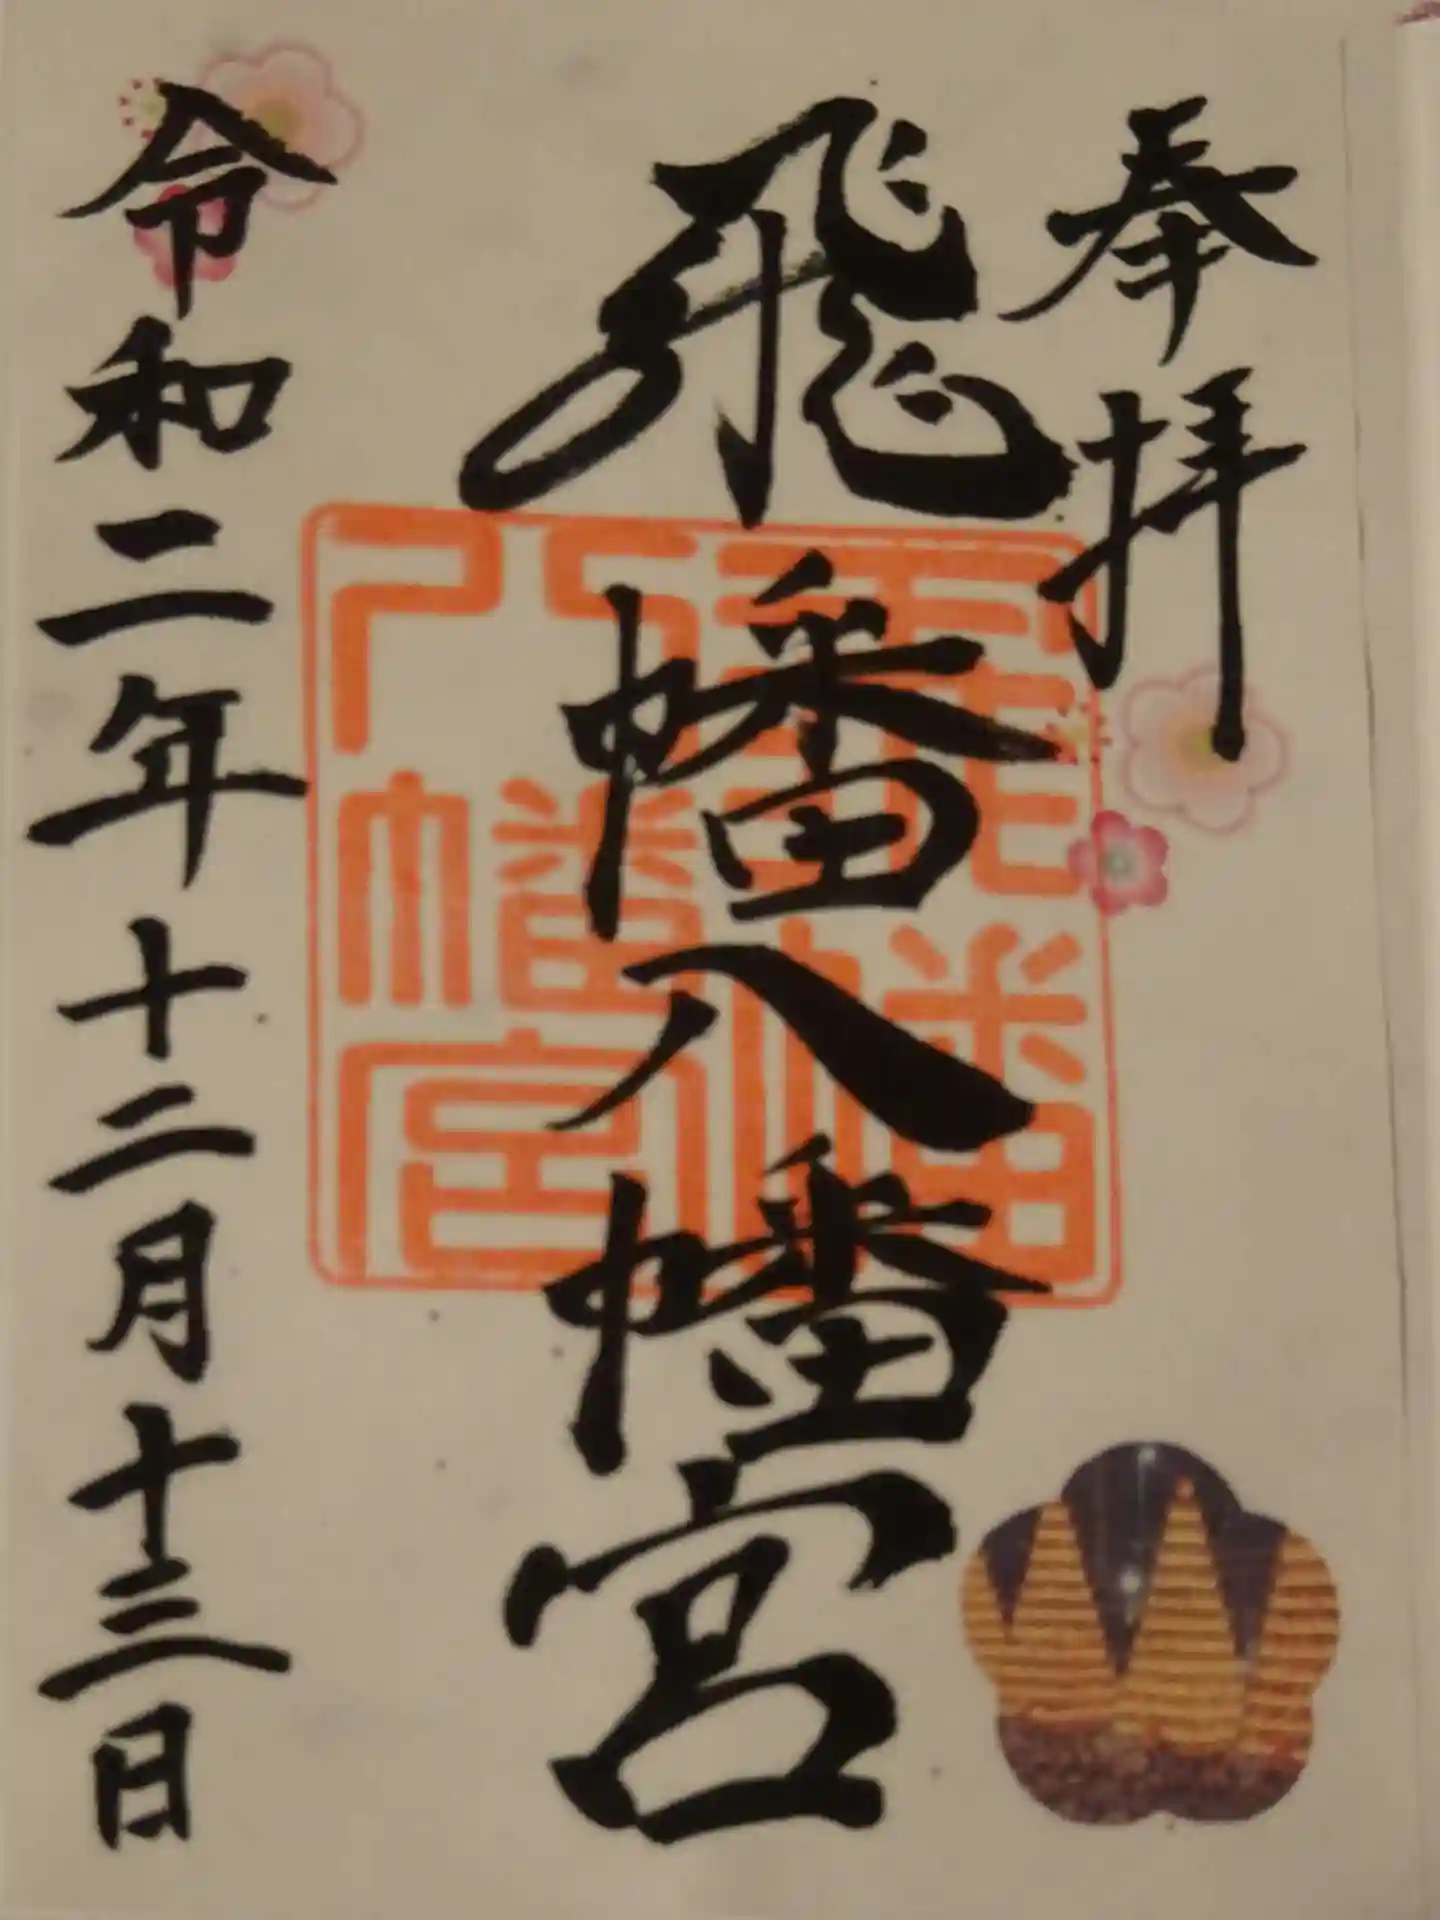 奉拝
飛幡八幡宮
飛幡八幡宮
令和二年十二月十三日